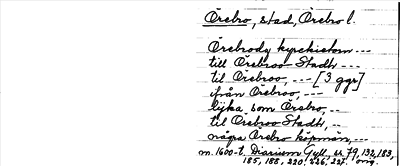 Örebro, stad, Örebro l.
Örebrody kyrckiotom ---
till Örebroo Stadh ---
til Örebroo, --- [3 ggr]
ifrån Örebroo, ---
lijka som Örebro, ---
til Örebroo Stadh, --
några Örebro köpmän, ---
m. 1600-t. Diarium Gyll. sr 79, 132, 183,
185, 188, 220, 226, 227. orig.